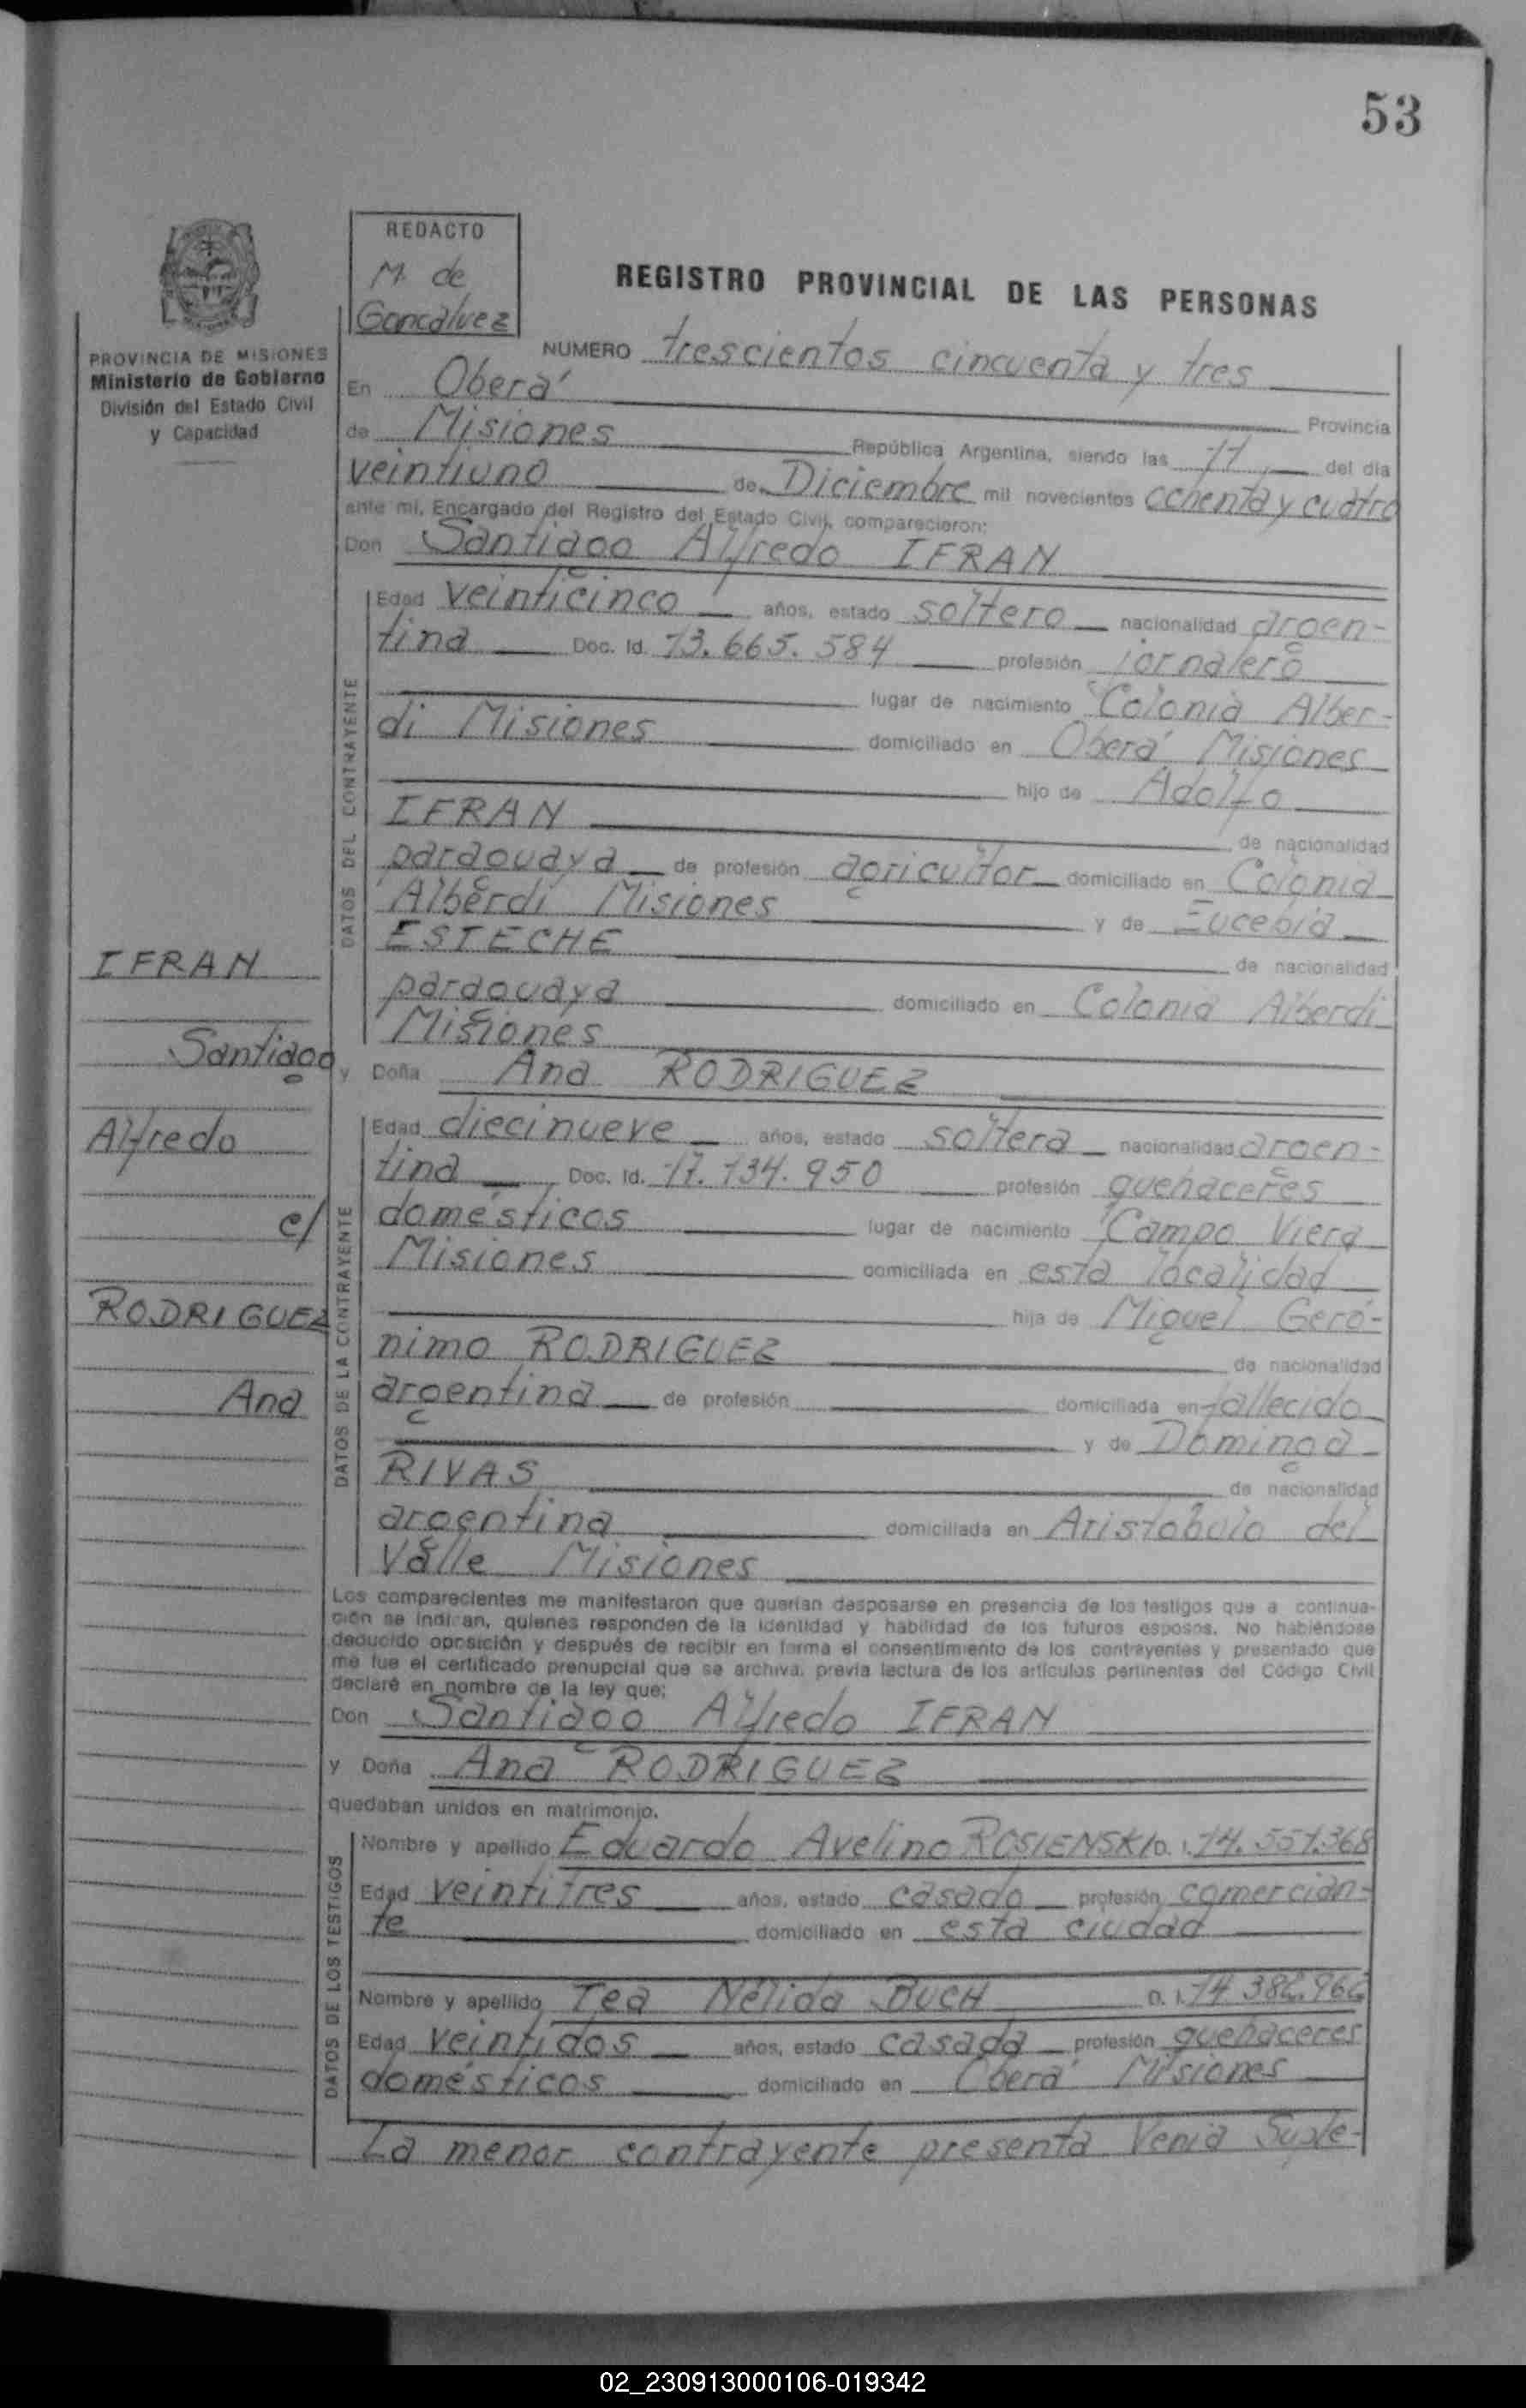 53
REDACTO
M. de
Goncalvez
REGISTRO PROVINCIAL DE LAS PERSONAS
PROVINCIA DE MISIONES
Ministerio de Gobierno
División del Estado Civil
y Capacidad
NUMERO trescientos cincuenta y tres
En Oberá Provincia
de Misiones República Argentina, siendo las 11 del día
veintiuno de Diciembre mil novecientos ochenta y cuatro
ante mí, Encargado del Registro del Estado Civil, comparecieron:
Don Santiago Alfredo IFRAN
DATOS DEL CONTRAYENTE
Edad veinticinco años, estado soltero nacionalidad argen-
tina Doc. Id. 13.665.584 profesión jornalero
lugar de nacimiento Colonia Alber-
di Misiones domiciliado en Oberá Misiones
hijo de Adolfo
IFRAN de nacionalidad
paraguaya de profesión agricultor domiciliado en Colonia
Alberdi Misiones y de Eucebia
ESTECHE de nacionalidad
paraguaya domiciliado en Colonia Alberdi
Misiones
y Doña Ana RODRIGUEZ
IFRAN
Santiago
Alfredo
c/
RODRIGUEZ
Ana
DATOS DE LA CONTRAYENTE
Edad diecinueve años, estado soltera nacionalidad argen-
tina Doc. Id. 17.134.950 profesión quehaceres
domésticos lugar de nacimiento Campo Viera
Misiones domiciliada en esta localidad
hija de Miguel Geró-
nimo RODRIGUEZ de nacionalidad
argentina de profesión domiciliada en fallecido
y de Dominga
RIVAS de nacionalidad
argentina domiciliada en Aristóbulo del
Valle Misiones
Los comparecientes me manifestaron que querían desposarse en presencia de los testigos que a continua-
ción se indican, quienes responden de la identidad y habilidad de los futuros esposos. No habiéndose
deducido oposición y después de recibir en forma el consentimiento de los contrayentes y presentado que
me fue el certificado prenupcial que se archiva, previa lectura de los artículos pertinentes del Código Civil
declaré en nombre de la ley que:
Don Santiago Alfredo IFRAN
y Doña Ana RODRIGUEZ
quedaban unidos en matrimonio.
DATOS DE LOS TESTIGOS
Nombre y apellido Eduardo Avelino ROSIENSKI D. I. 14.551.368
Edad veintitres años, estado casado profesión comercian-
te domiciliado en esta ciudad
Nombre y apellido Tea Nélida BUCH D. I.
Edad veintidos años, estado casada profesión quehaceres
domésticos domiciliado en Oberá Misiones
La menor contrayente presenta Venia Suple-
02_230913000106-019342